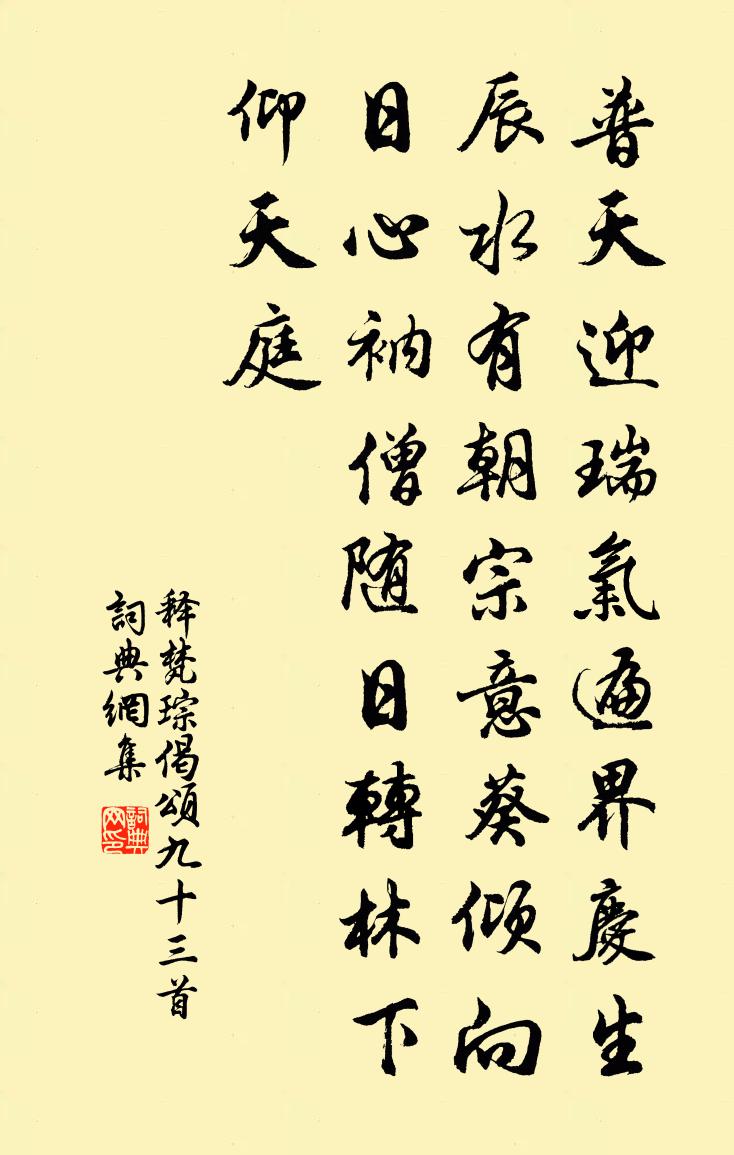 普天迎瑞氣遍界慶生
辰水有朝宗意葵傾向
日心衲僧随日轉林下
仰天庭
释梵琮偈頌九十三首
詞典網集
詞典网印